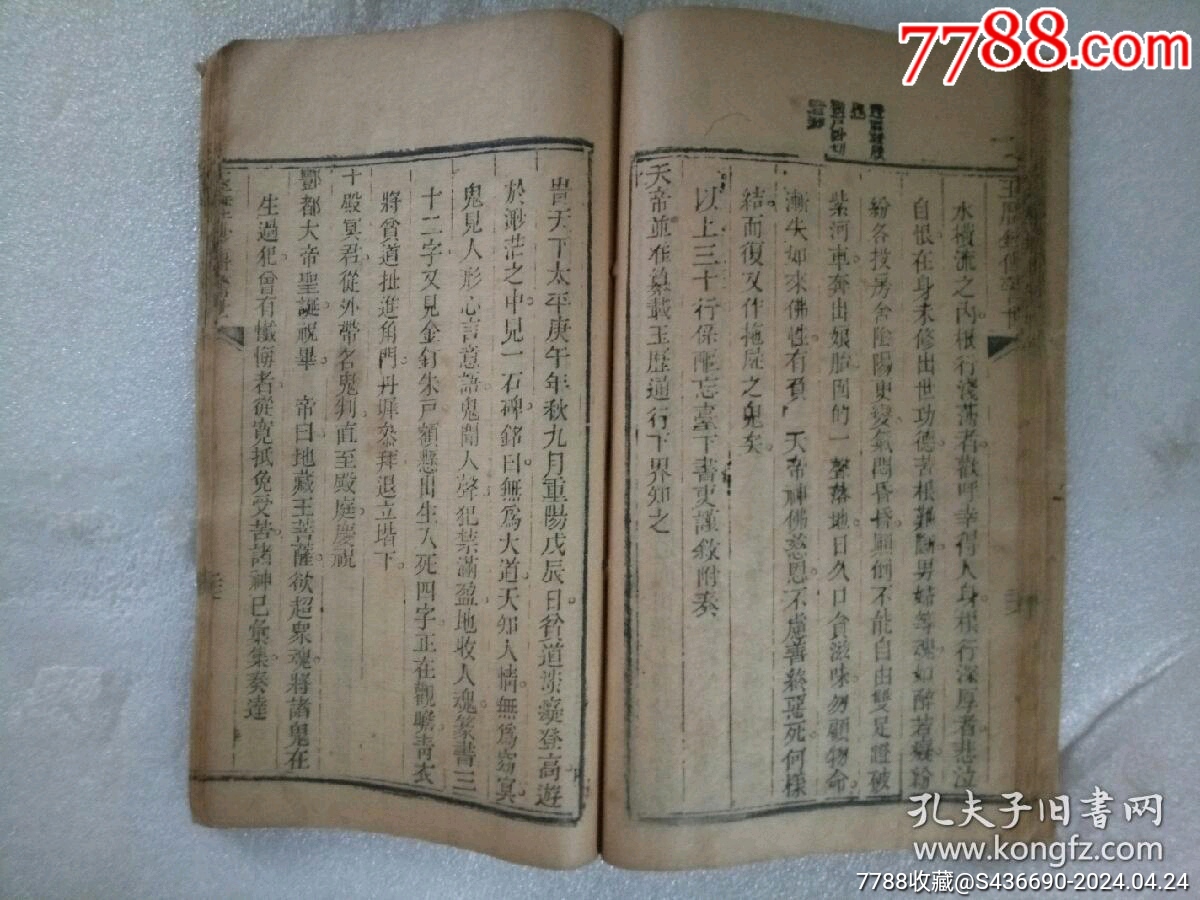 7788.com
水橫流之內根行淺薄者歡呼幸得人身根行深厚者悲泣
自恨在身未修出世功德苦根難斷男婦等魂如醉若癡紛
紛各投房舍陰陽更變氣悶昏昏顛倒不能自由雙足蹬破
紫河車奔出娘胎㘞的一聲落地日久口貪滋味勿顧物命
漸失如來佛性有負 天帝神佛慈恩不慮善終惡死何樣
結而復又作拖屍之鬼矣
以上三十行係醧忘臺下書吏謹敘附奏
天帝並准纂載玉歷通行下界知之
昔天下太平庚午年秋九月重陽戊辰日貧道淡癡登高遊
於渺茫之中見一石碑銘曰無為大道天知人情無為窈冥
鬼見人形心言意語鬼聞人聲犯禁滿盈地收人魂篆書三
十二字又見金釘朱戶額懸出生入死四字正在觀瞻青衣
將貧道扯進角門丹墀叅拜退立堦下
十殿冥君從外帶名鬼判直至殿庭慶祝
酆都大帝聖誕祝畢 帝曰地藏王菩薩欲超衆魂將諸鬼在
生過犯曾有懺悔者從寬抵免受苦諸神已彙集奏達
孔夫子旧書网
www.kongfz.com
7788收藏@S436690-2024.04.24